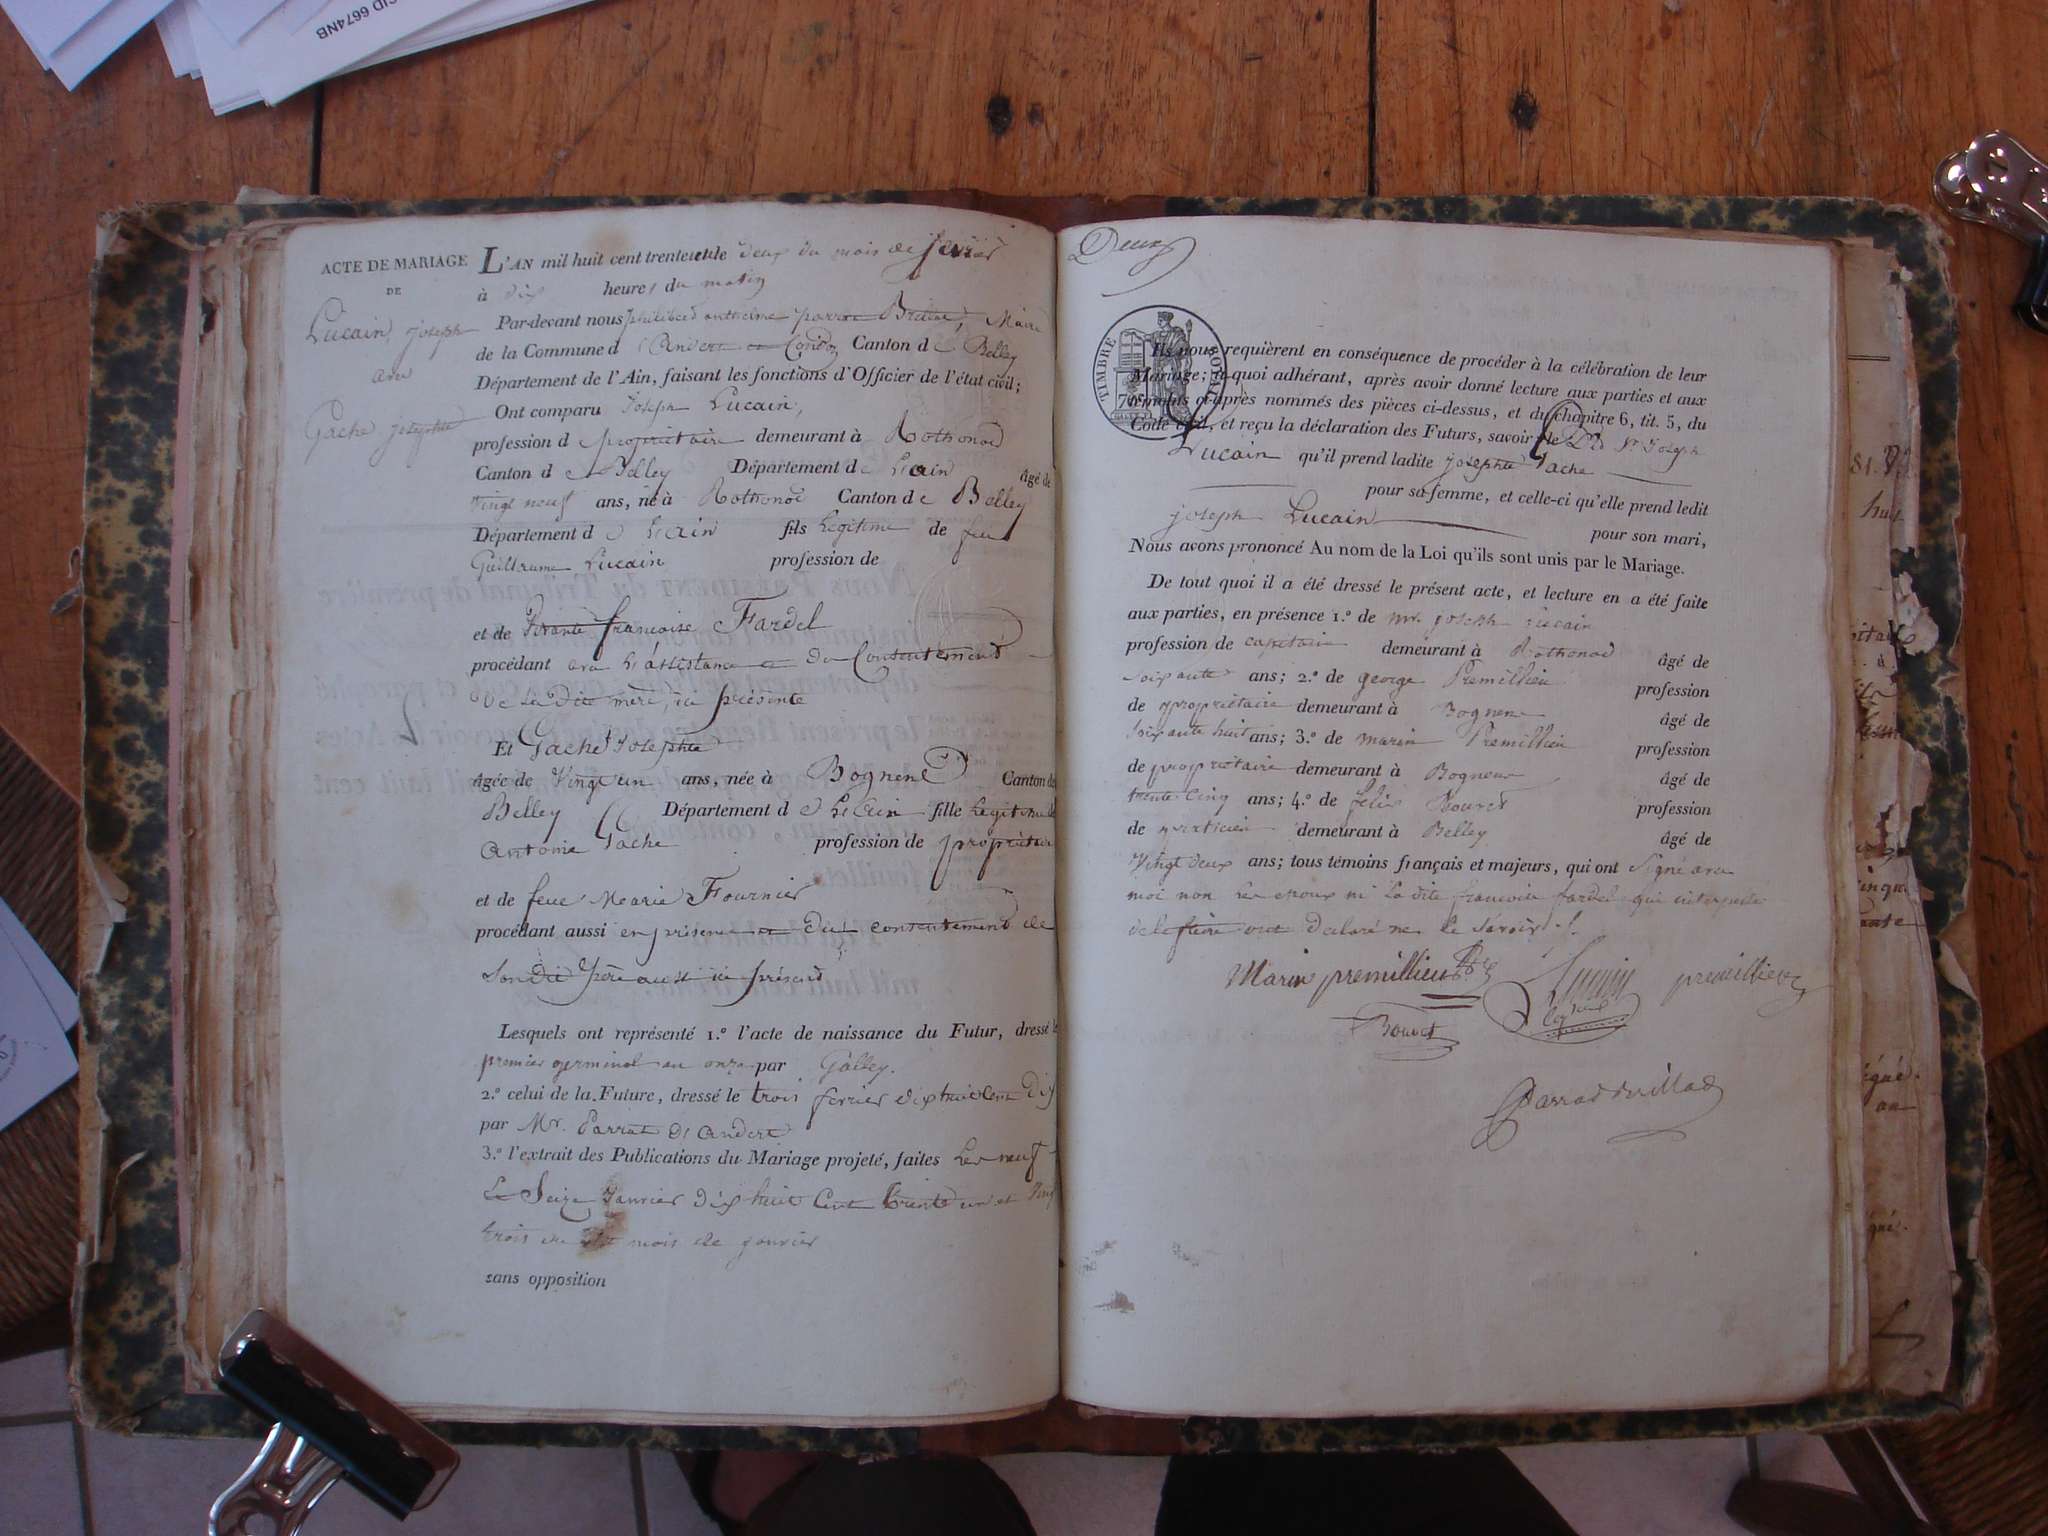 CID 6674NB
ACTE DE MARIAGE
DE
Lucain, joseph
avec
Gache, josephte
L'AN mil huit cent trente et un le deux du mois de fevrier
à dix heures du matin
Par-devant nous philibert anthelme parrat Brillat, Maire
de la Commune d'Andert et Condon Canton de Belley
Département de l'Ain, faisant les fonctions d'Officier de l'état civil;
Ont comparu Joseph Lucain,
profession de propriétaire demeurant à Rothonod
Canton de Belley Département de L'ain âgé de
vingt neuf ans, né à Rothonod Canton de Belley
Département de L'ain fils Legitime de feu
Guillaume Lucain profession de
et de françoise Fardel
procédant avec L'assistance et du Consentement
de La dite mere, ici présente
Et Gache Josephte
âgée de Vingt un ans, née à Bognens Canton de
Belley Département de L'Ain fille Legitime de
Antoine Gache profession de propriétaire
et de feue Marie Fournier
procédant aussi en présence et du consentement de
Son dit père aussi ici présent
Lesquels ont représenté 1.º l'acte de naissance du Futur, dressé le
premier germinal an onze par Galley.
2.º celui de la Future, dressé le trois fevrier dix huit cent dix
par Mr. Parrat d'andert
3.º l'extrait des Publications du Mariage projeté, faites Les neuf
Le Seize Janvier dix huit Cent trente un et Vingt
trois du dit mois de janvier
sans opposition
Deux
TIMBRE ROYAL
Ils nous requièrent en conséquence de procéder à la célébration de leur
Mariage; à quoi adhérant, après avoir donné lecture aux parties et aux
témoins ci-après nommés des pièces ci-dessus, et du chapitre 6, tit. 5, du
Code civil, et reçu la déclaration des Futurs, savoir: le Dit Sr. Joseph
Lucain qu'il prend ladite josephte Gache
pour sa femme, et celle-ci qu'elle prend ledit
joseph Lucain pour son mari,
Nous avons prononcé Au nom de la Loi qu'ils sont unis par le Mariage.
De tout quoi il a été dressé le présent acte, et lecture en a été faite
aux parties, en présence 1.º de mr. joseph Lucain
profession de capitaine demeurant à Rothonod âgé de
soixante ans; 2.º de george Premillieu profession
de propriétaire demeurant à Bognens âgé de
soixante huit ans; 3.º de marin Premillieu profession
de propriétaire demeurant à Bognens âgé de
trente cinq ans; 4.º de felix Bouvet profession
de praticien demeurant à Belley âgé de
Vingt deux ans; tous témoins français et majeurs, qui ont signé avec
moi non les epoux ni La dite francoise fardel qui interpellé
de le faire ont declaré ne le savoir.
Marin premillieu Lucain premillieu
Bouvet